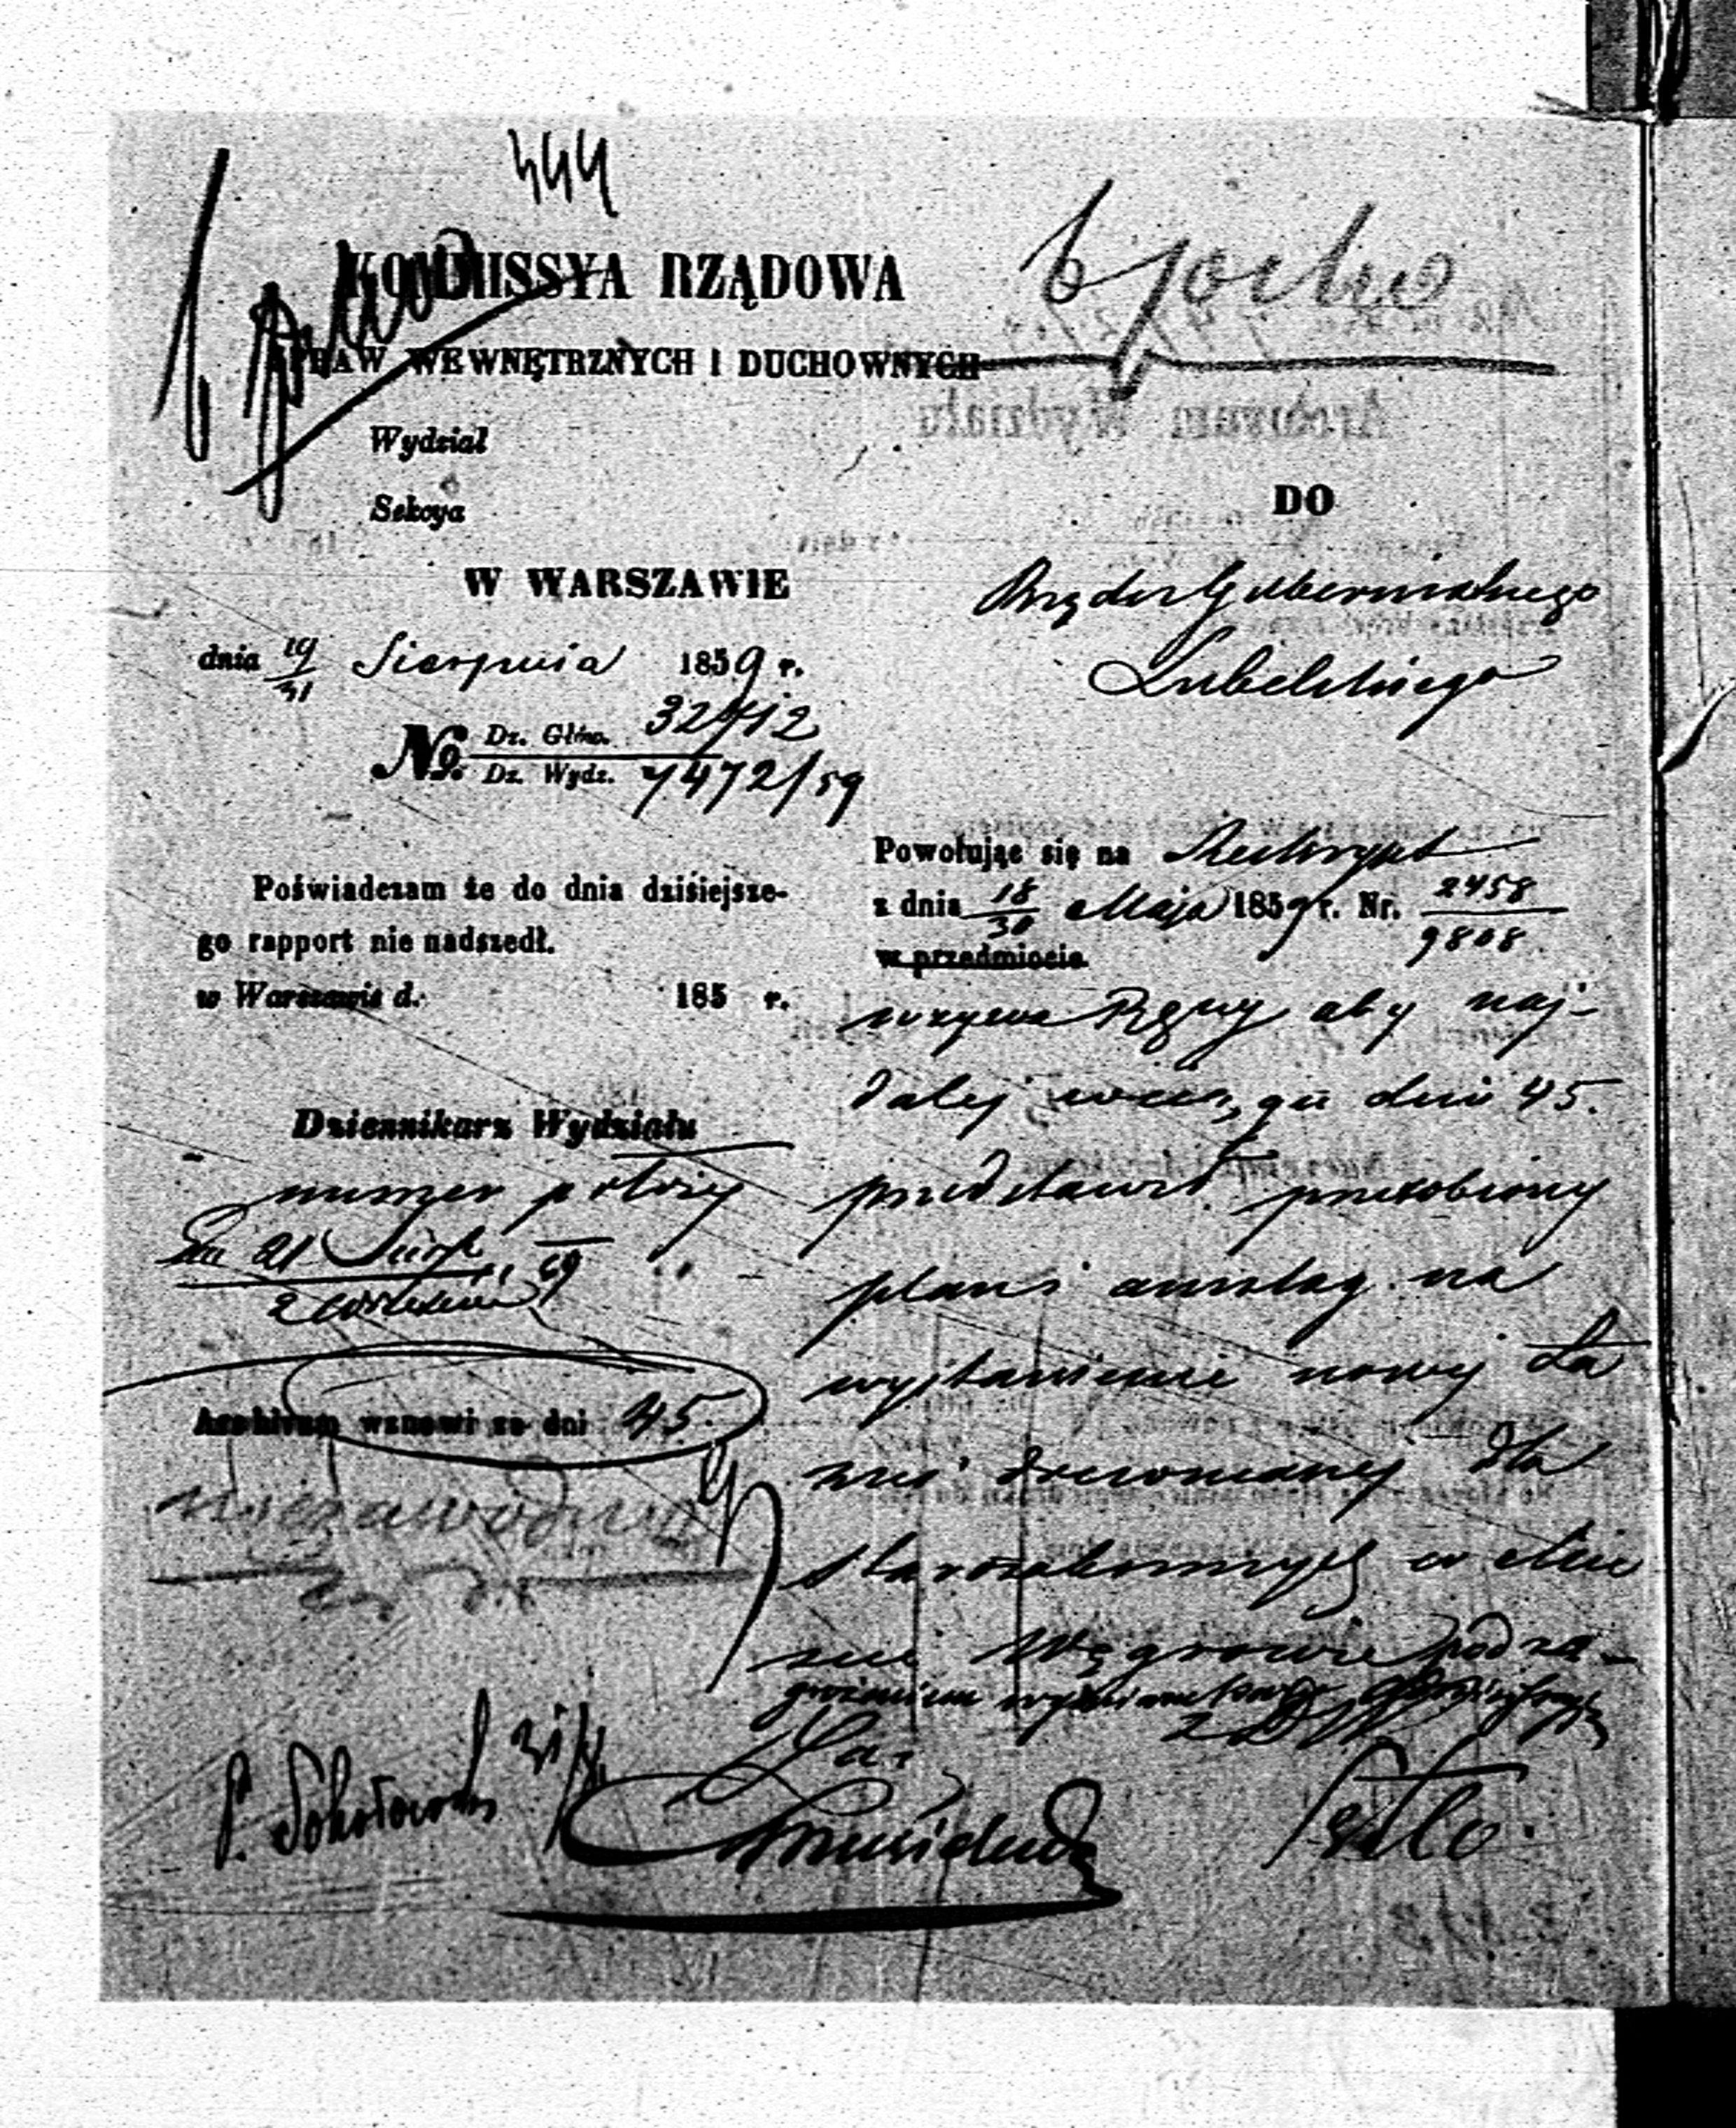 444
KOMMISSYA RZĄDOWA
SPRAW WEWNĘTRZNYCH I DUCHOWNYCH
Wydział
Sekcya
W WARSZAWIE
dnia 19/31 Sierpnia 1859 r.
No. Dz. Główn. 32712
Dz. Wydz. 7472/59
Poświadczam że do dnia dzisiejsze-
go rapport nie nadszedł.
w Warszawie d. 185 r.
Dziennikarz Wydziału
numer położy
21 Sierp
2 Września 59
Archiwum wznowi za dni 45.
niezawodnie
P. Sokołowski 31/8
DO
Rządu Gubernialnego
Lubelskiego
Powołując się na Reskrypt
z dnia 18/30 Maja 1859 r. Nr. 2458/9808
w przedmiocie
wzywa Rząd aby naj-
dalej w ciągu dni 45.
przedstawił przerobiony
plan i anszlag na
wystawienie nowej Ła
zni drewnianej dla
starozakonnych w Mie
ście Węgrowie pod za-
grożeniem